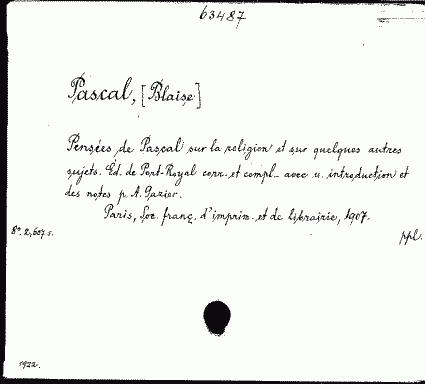 63487
Pascal, [Blaise]
Pensées de Pascal sur la religion et sur quelques autres
sujets. Éd. de Port-Royal corr. et compl. avec u. introduction et
des notes p. A. Gazier.
Paris, Soc. franç. d'imprim. et de librairie, 1907.
8°. 2, 607 s.
ppl.
1922.